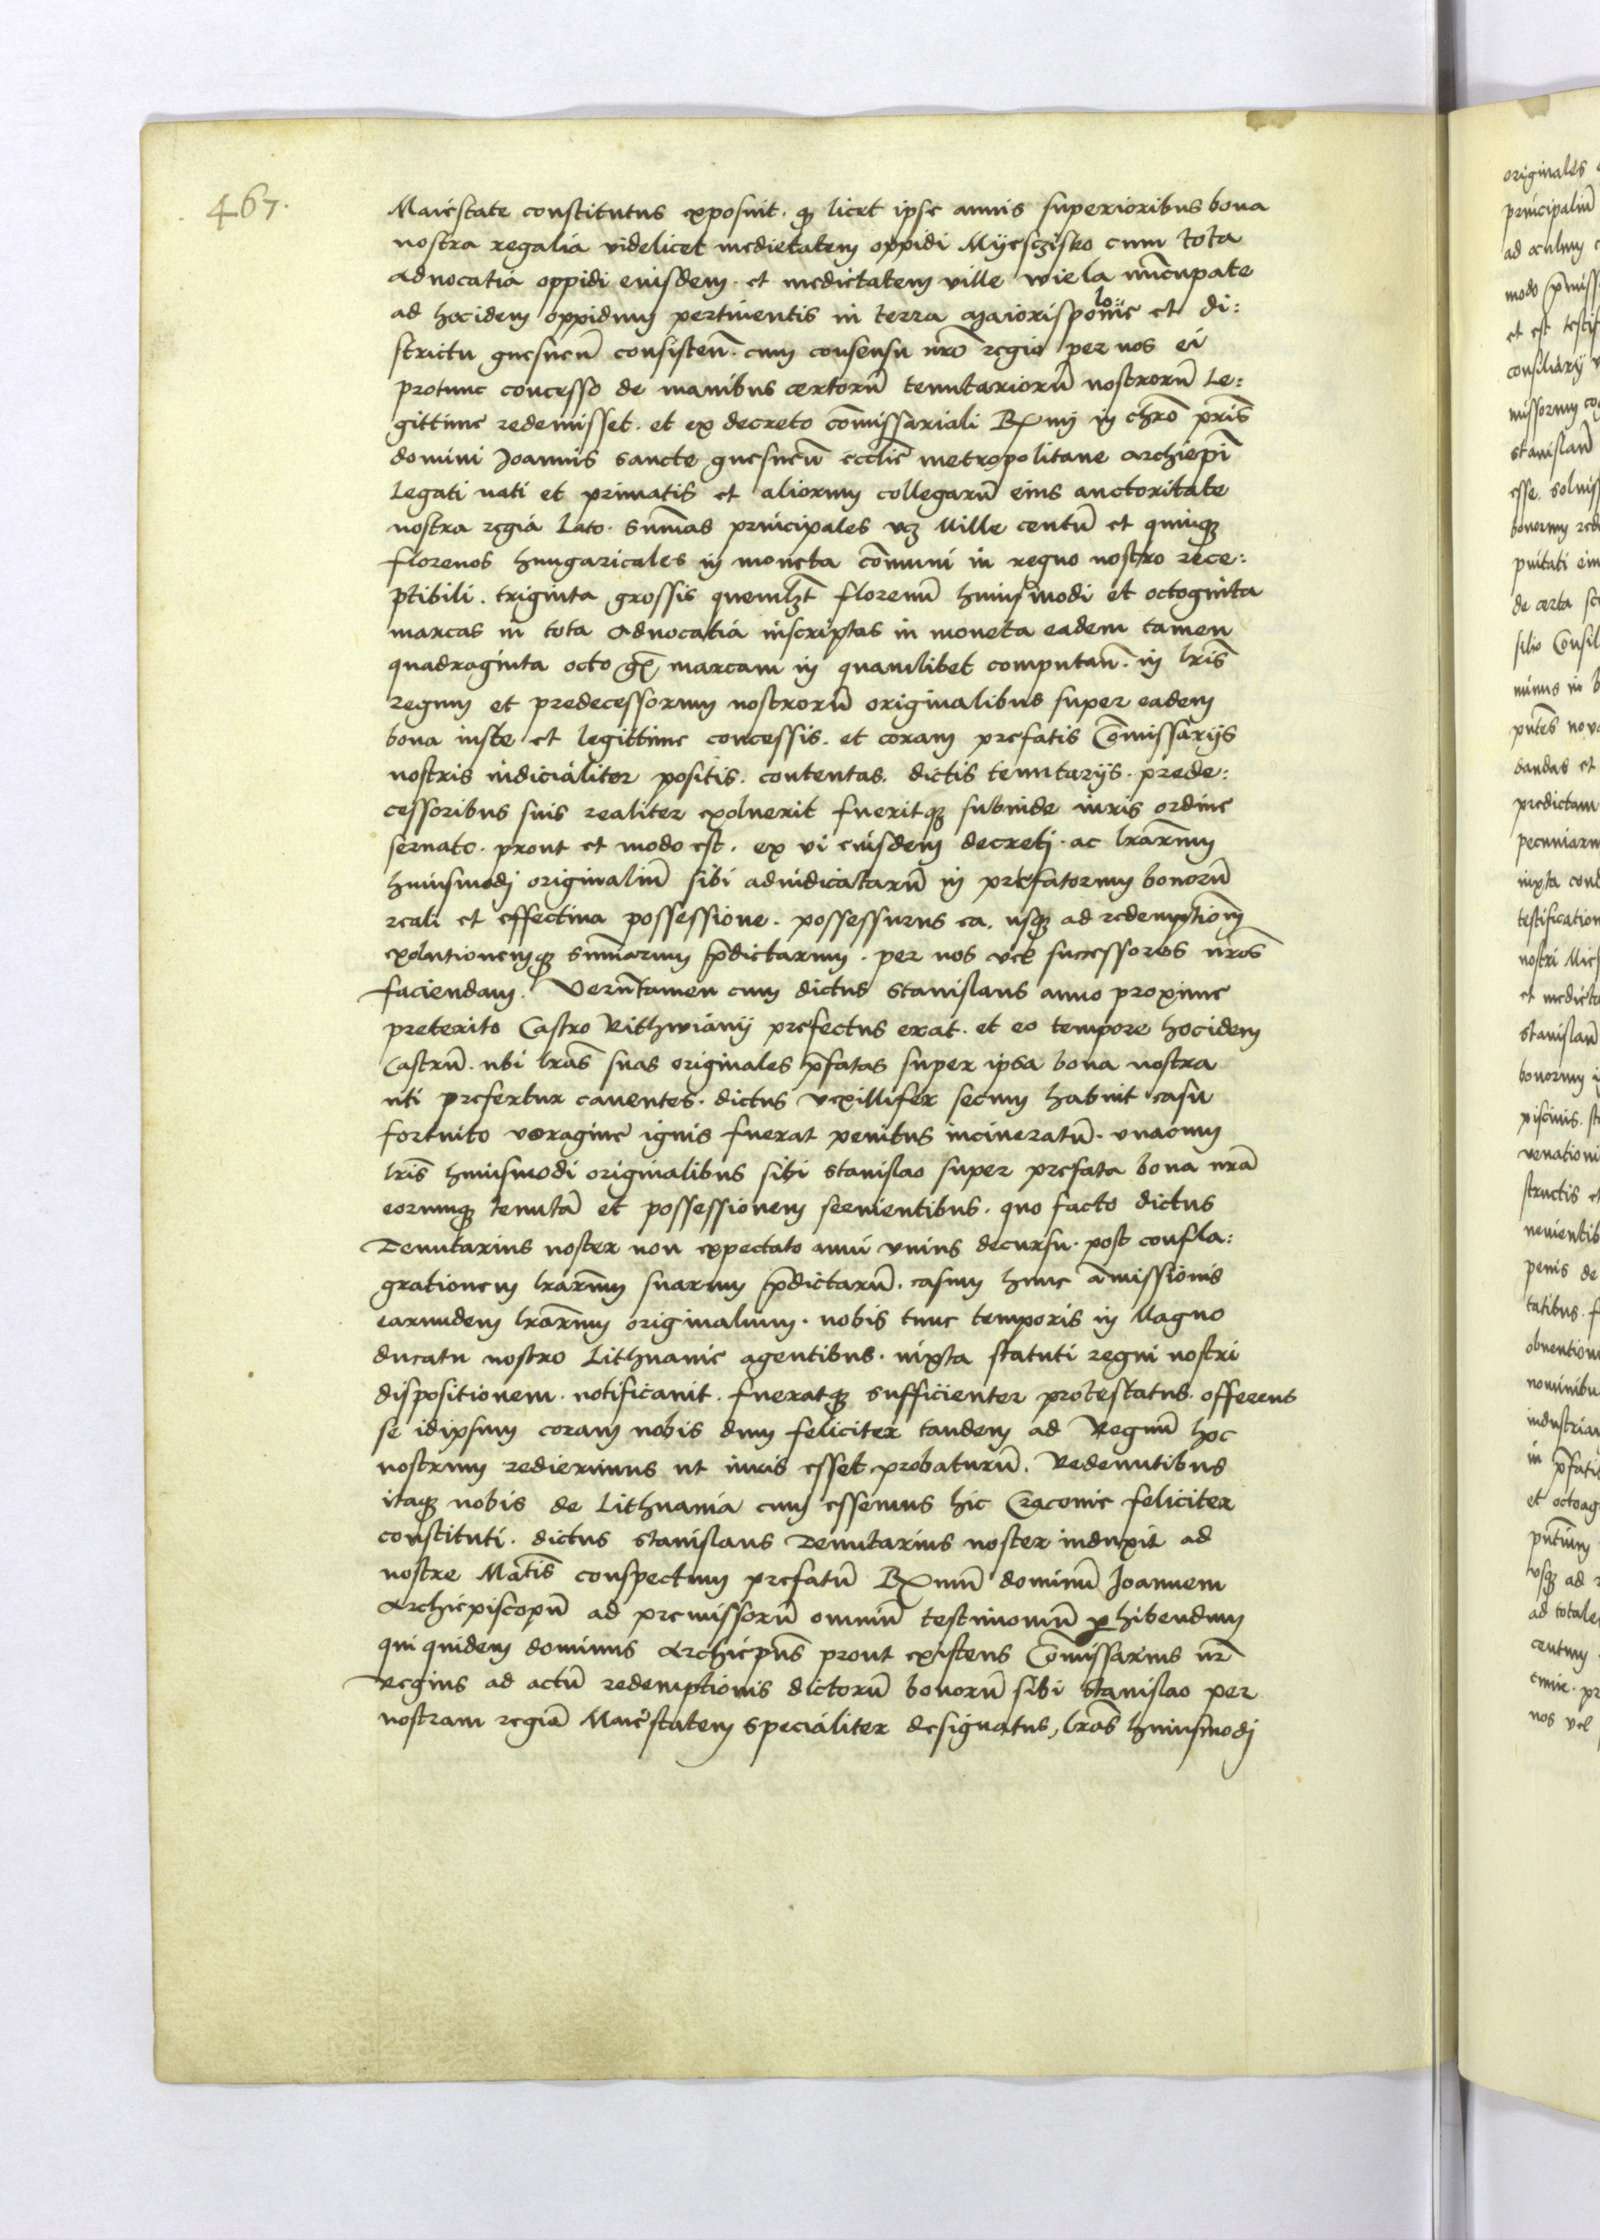 467.
Maiestate constitutus exposuit. qz licet ipse annis superioribus bona
nostra regalia videlicet medietatem oppidi Myesczisko cum tota
Advocatia oppidi eiusdem. et medietatem ville wiela nu̅cupate
ad hocidem oppidum pertinentis in terra maiorispolonie et di:
strictu gnesnen̅ consisten̅. cum consensu nr̅o regio per nos ei
protunc concesso de manibus certoru̅ tenutarioru̅ nostroru̅ Le:
gittime redemisset. et ex decreto co̅missariali R̅mi in chr̅o pr̅is
domini Joannis sancte gnesnen̅ eccl̅ie metropolitane archiep̅i
Legati nati et primatis et aliorum collegaru̅ eius auctoritate
nostra regia Lato. Su̅mas principales vcz Mille centu̅ et quinqz
florenos hungaricales in moneta co̅muni in regno nostro rece:
ptibili. triginta grossis quemlz̅t florenu̅ huiusmodi et octoginta
marcas in tota Advocatia inscriptas in moneta eadem tamen
quadraginta octo gr̅ marcam in quamlibet computan̅. in lr̅is
regum et predecessorum nostroru̅ originalibus super eadem
bona iuste et legittime concessis. et coram prefatis Co̅missarijs
nostris iudicialiter positis. contentas. dictis tenutarijs. prede:
cessoribus suis realiter exolverit fueritqz subinde iuris ordine
servato. prout et modo est. ex vi eiusdem decreti. ac lr̅arum
huiusmodi originaliu̅ sibi adiudicataru̅ in prefatorum bonoru̅
reali et effectiva possessione. possessurus ea. usqz ad redemption̅
exolutionemqz su̅marum p̅dictarum. per nos vel successores nr̅os
faciendam. Veru̅tamen cum dictus Stanislaus anno proxime
preterito Castro Rithwianij prefectus erat. et eo tempore hocidem
Castru̅. ubi lr̅as suas originales p̅fatas super ipsa bona nostra
uti prefertur caventes. dictus vexillifer secum habuit casu
fortuito voragine ignis fuerat penitus incineratu̅. unacum
lr̅is huiusmodi originalibus sibi Stanislao super prefata bona nr̅a
eorumqz tenuta̅ et possessionem servientibus. quo facto dictus
Tenutarius noster non expectato anni unius decursu. post confla:
grationem lr̅arum suarum p̅dictaru̅. casum hunc amissionis
earundem lr̅arum originalium. nobis tunc temporis in Magno
ducatu nostro Lithuanie agentibus. iuxta statuti regni nostri
dispositionem. notificavit. fueratqz sufficienter protestatus. offerens
se idipsum coram nobis dum feliciter tandem ad Regnu̅ hoc
nostrum redierimus ut iuris esset probaturu̅. Redeuntibus
itaqz nobis de Lithuania cum essemus hic Cracovie feliciter
constituti. dictus Stanislaus Tenutarius noster induxit ad
nostre Ma̅tis conspectum prefatu̅ R̅mu̅ dominu̅ Joannem
Archiepiscopu̅ ad premissoru̅ omniu̅ testimoniu̅ perhibendum
qui quidem dominus Archiep̅us prout existens Co̅missarius nr̅
regius ad actu̅ redemptionis dictoru̅ bonoru̅ sibi Stanislao per
nostram regia̅ Maiestatem specialiter designatus, lr̅as huiusmodi
originales
principaliu̅
modo p̅miss
et est testif
consiliarij
missorum co
stanislau̅
esse. solvis
bonorum red
de certa
silio Consil
minus in
dandas et
predictam
pecuniaru
iuxta cont
testification
nostri Mies
et medieta
stanislau̅
bonorum
piscinis. st
venationi
structis et
penis de
tatibus.
obvention
nominibu
industria
in p̅fatis
et octoag
ad totale
centum
nos vel